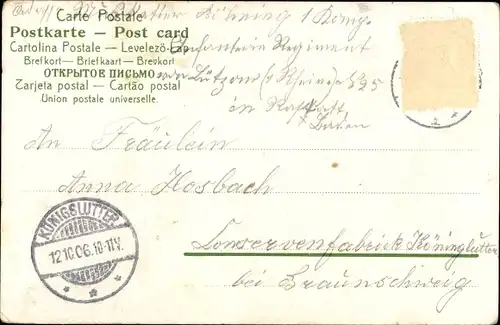 Carte Postale
Postkarte — Post card
Cartolina Postale — Levelező-Lap
Brefkort — Briefkaart — Brevkort
ОТКРЫТОЕ ПИСЬМО
Zarjeta postal — Cartão postal
Union postale universelle.
Musketier Böhning 1 Komp.
Infanterie Regiment
von Lützow (Rhein) № 25
in Rastatt
Baden
An Fräulein
Anna Hosbach
Conservenfabrick Königslutter
bei Braunschweig
KÖNIGSLUTTER
12.10.06.10-11V.